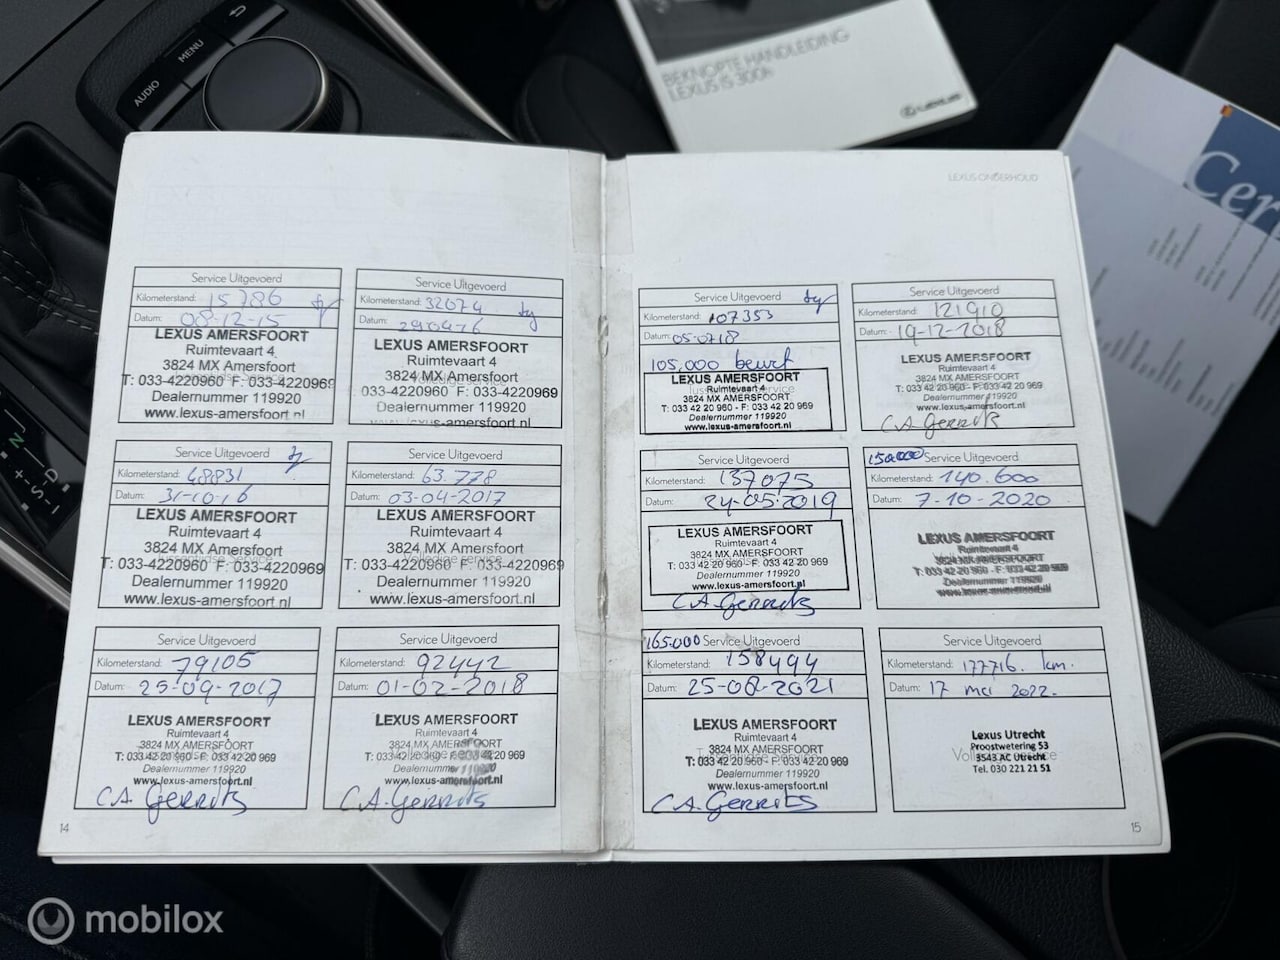 AUDIO
MENU
BEKNOPTE HANDLEIDING
LEXUS IS 300h
LEXUS
Cer
N
+
S D
-
LEXUS ONDERHOUD
Service Uitgevoerd
Kilometerstand: 15786
Datum: 08-12-15
LEXUS AMERSFOORT
Ruimtevaart 4
3824 MX Amersfoort
T: 033-4220960 F: 033-4220969
Dealernummer 119920
www.lexus-amersfoort.nl
Service Uitgevoerd
Kilometerstand: 32074
Datum: 29-04-16
LEXUS AMERSFOORT
Ruimtevaart 4
3824 MX Amersfoort
033-4220960 F: 033-4220969
Dealernummer 119920
www.lexus-amersfoort.nl
Service Uitgevoerd
Kilometerstand: 48831
Datum: 31-10-16
LEXUS AMERSFOORT
Ruimtevaart 4
3824 MX Amersfoort
T: 033-4220960 F: 033-4220969
Dealernummer 119920
www.lexus-amersfoort.nl
Service Uitgevoerd
Kilometerstand: 63.778
Datum: 03-04-2017
LEXUS AMERSFOORT
Ruimtevaart 4
3824 MX Amersfoort
T: 033-4220960 F: 033-4220969
Dealernummer 119920
www.lexus-amersfoort.nl
Service Uitgevoerd
Kilometerstand: 79105
Datum: 25-09-2017
LEXUS AMERSFOORT
Ruimtevaart 4
3824 MX AMERSFOORT
T: 033 42 20 960 - F: 033 42 20 969
Dealernummer 119920
www.lexus-amersfoort.nl
C.A. Gerrits
Service Uitgevoerd
Kilometerstand: 92442
Datum: 01-02-2018
LEXUS AMERSFOORT
Ruimtevaart 4
3824 MX AMERSFOORT
T: 033 42 20 960 - F: 033 42 20 969
Dealernummer 119920
www.lexus-amersfoort.nl
C.A. Gerrits
14
Service Uitgevoerd
Kilometerstand: 107353
Datum: 05-07-18
105.000 beurt
LEXUS AMERSFOORT
Ruimtevaart 4
3824 MX AMERSFOORT
T: 033 42 20 960 - F: 033 42 20 969
Dealernummer 119920
www.lexus-amersfoort.nl
Service Uitgevoerd
Kilometerstand: 121910
Datum: 19-12-2018
LEXUS AMERSFOORT
Ruimtevaart 4
3824 MX AMERSFOORT
T: 033 42 20 960 - F: 033 42 20 969
Dealernummer 119920
www.lexus-amersfoort.nl
C.A. Gerrits
Service Uitgevoerd
Kilometerstand: 137075
Datum: 24-05-2019
LEXUS AMERSFOORT
Ruimtevaart 4
3824 MX AMERSFOORT
T: 033 42 20 960 - F: 033 42 20 969
Dealernummer 119920
www.lexus-amersfoort.nl
C.A. Gerrits
150.000 Service Uitgevoerd
Kilometerstand: 140.600
Datum: 7-10-2020
LEXUS AMERSFOORT
Ruimtevaart 4
3824 MX AMERSFOORT
T: 033 42 20 960 - F: 033 42 20 969
Dealernummer 119920
www.lexus-amersfoort.nl
165.000 Service Uitgevoerd
Kilometerstand: 158494
Datum: 25-08-2021
LEXUS AMERSFOORT
Ruimtevaart 4
3824 MX AMERSFOORT
T: 033 42 20 960 - F: 033 42 20 969
Dealernummer 119920
www.lexus-amersfoort.nl
C.A. Gerrits
Service Uitgevoerd
Kilometerstand: 177716. km.
Datum: 17 mei 2022.
Lexus Utrecht
Proostwetering 53
3543 AC Utrecht
Tel. 030 221 21 51
15
mobilox